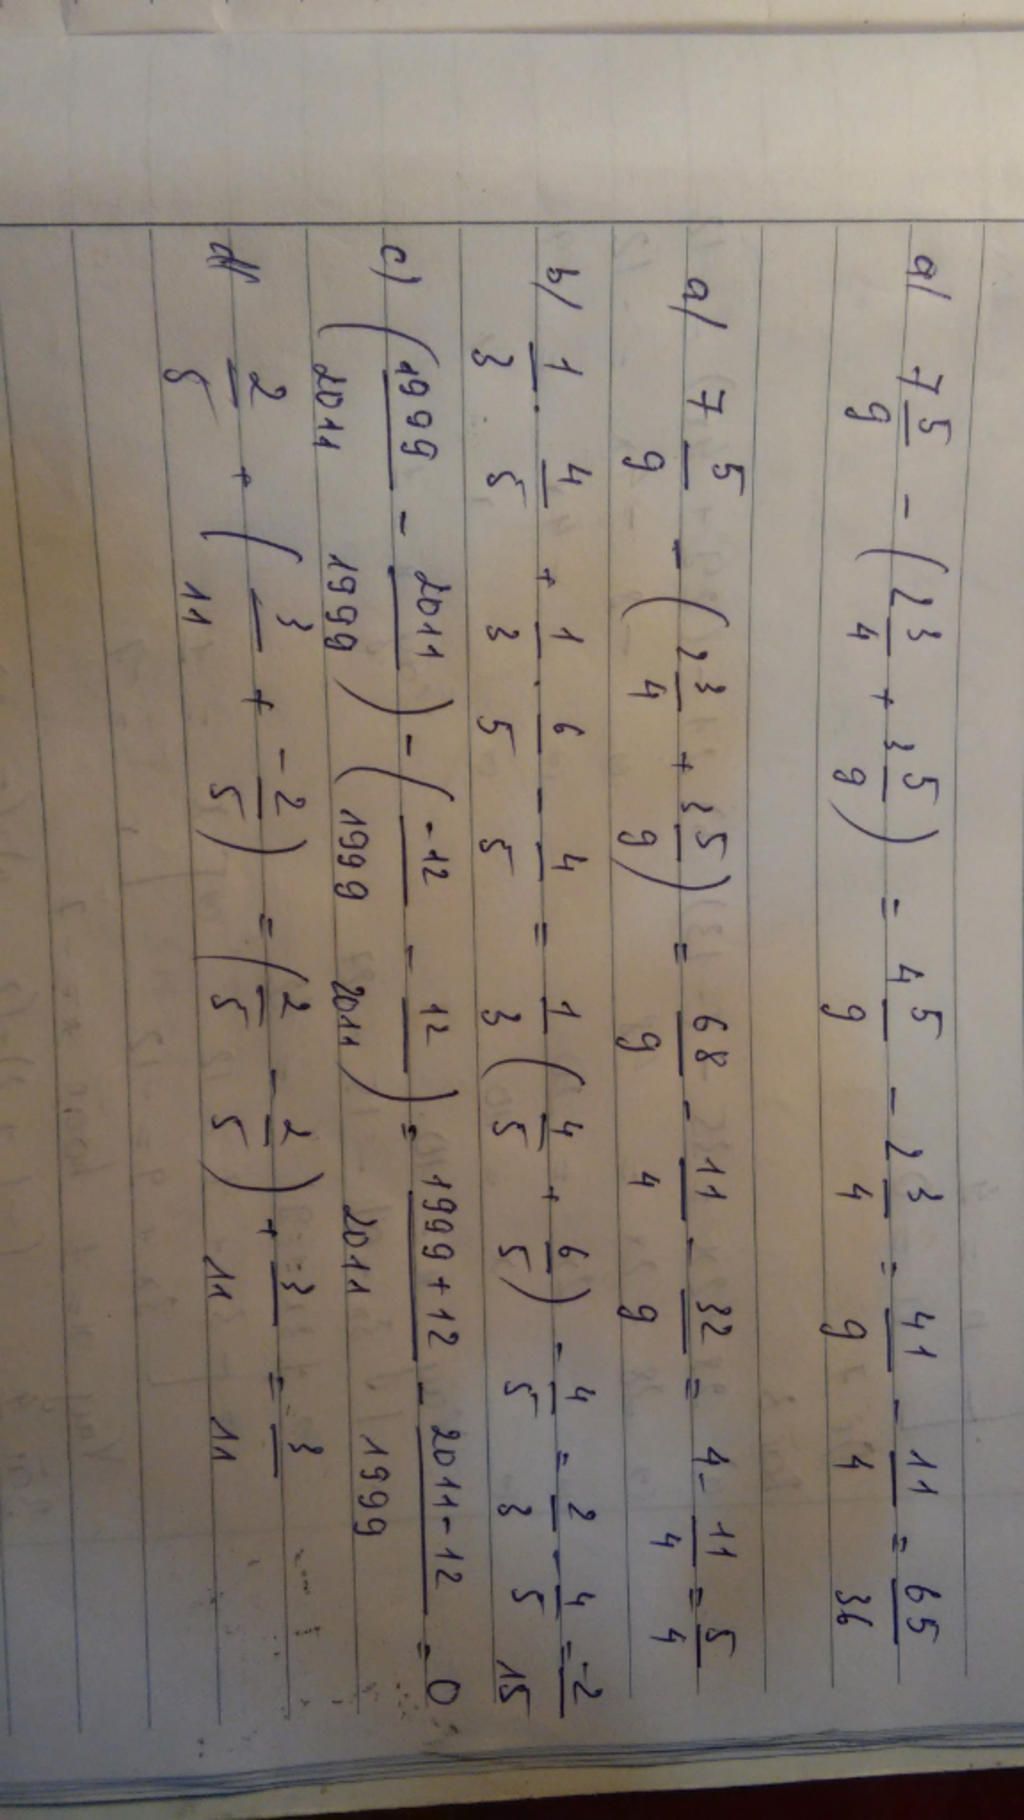 a/ 7 5/9 - (2 3/4 + 3 5/9) = 4 5/9 - 2 3/4 = 41/9 - 11/4 = 65/36
a/ 7 5/9 - (2 3/4 + 3 5/9) = 68/9 - 11/4 - 32/9 = 4 - 11/4 = 5/4
b/ 1/3 . 4/5 + 1/3 . 6/5 - 4/5 = 1/3 (4/5 + 6/5) - 4/5 = 2/3 - 4/5 = -2/15
c) (1999/2011 - 2011/1999) - (-12/1999 - 12/2011) = 1999+12/2011 - 2011-12/1999 = 0
d/ 2/5 + (3/11 + -2/5) = (2/5 - 2/5) + 3/11 = 3/11